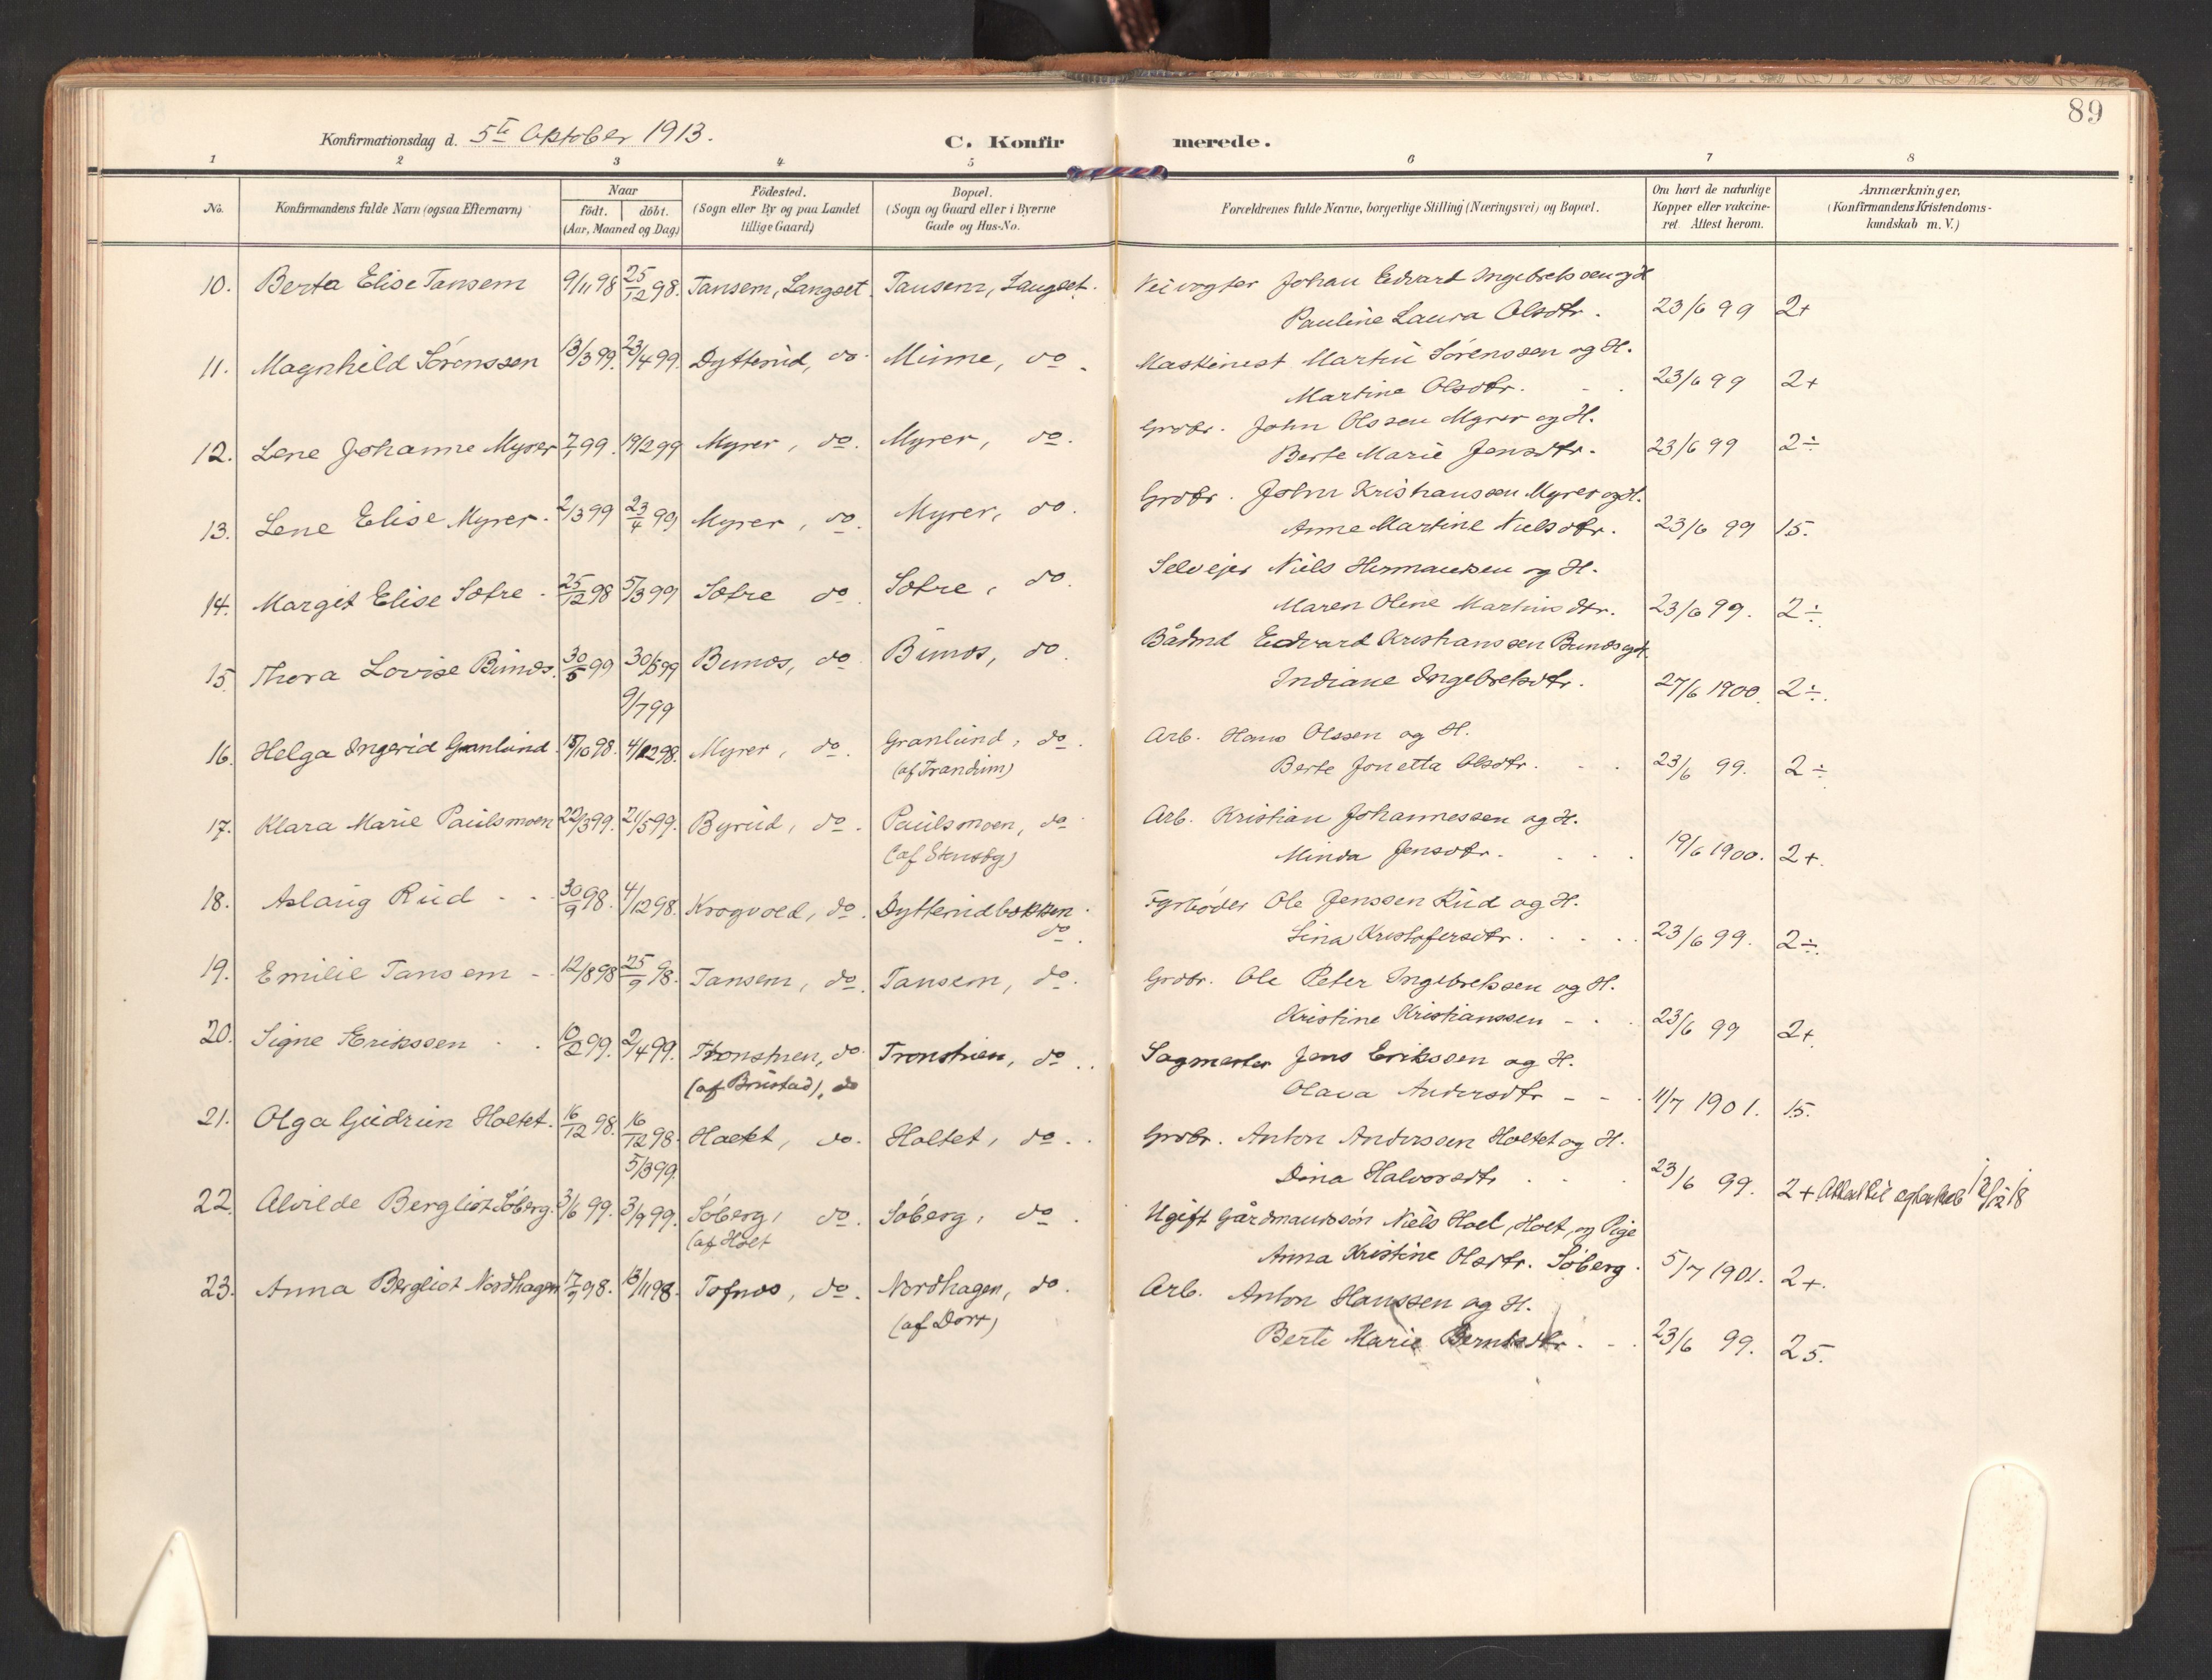 89
Konfirmationsdag d. 5te Oktober 1913.
C. Konfirmerede.
1 2 3 4 5 6 7 8
No.
Konfirmandens fulde Navn (ogsaa Efternavn)
Naar
födt. döbt.
(Aar, Maaned og Dag)
Födested.
(Sogn eller By og paa Landet
tillige Gaard)
Bopæl.
(Sogn og Gaard eller i Byerne
Gade og Hus-No.
Forældrenes fulde Navne, borgerlige Stilling (Næringsvei) og Bopæl.
Om havt de naturlige
Kopper eller vakcine-
ret. Attest herom.
Anmærkninger,
(Konfirmandens Kristendoms-
kundskab m. V.)
10. Berta Elise Tansem 9/11 98 25/12 98. Tansem, Langset. Tansem, Langset. Veivogter Johan Edvart Ingebretssen og H
Pauline Laura Olsdtr. 23/6 99 2+
11. Magnhild Sørenssen 13/3 99. 23/4 99. Dytterud, do. Minne, do. Maskinest Martin Sørenssen og H.
Martine Olsdtr. 23/6 99 2+
12. Lene Johanne Myrer 7/1 99. 19/2 99 Myrer, do. Myrer, do. Grdbr. John Olssen Myrer og H.
Berte Marie Jensdtr. 23/6 99 2÷
13. Lene Elise Myrer. 2/3 99 23/4 99 Myrer, do. Myrer, do. Grdbr. John Kristianssen Myrer og H.
Anne Martine Nielsdtr. 23/6 99 15.
14. Margit Elise Sætre. 25/12 98 5/3 99 Sætre do. Sætre, do. Selvejer Niels Hermansen og H.
Maren Oline Martinsdtr. 23/6 99. 2÷
15. Thora Lovise Bunæs. 30/5 99 30/5 99 Bunæs, do. Bunæs, do. Bådmd Edvard Kristianssen Bunæs og H.
9/7 99 Indiane Ingebretsdtr. 27/6 1900. 2÷.
16. Helga Ingerid Granlund. 15/10 98. 4/12 98. Myrer, do. Granlund, do. Arb. Hans Olssen og H.
(af Trandum) Berte Jonetta Olsdtr. 23/6 99. 2÷
17. Klara Marie Paulsmoen 22/3 99. 21/5 99. Byrud, do. Paulsmoen, do. Arb. Kristian Johannessen og H.
(af Stensby) Minda Jensdtr. 19/6 1900. 2+.
18. Aslaug Rud 30/9 98. 4/12 98. Krogvold, do. Dytterudbakken Fyrbøder Ole Jenssen Rud og H.
do. Lina Kristofersdtr. 23/6 99. 2÷.
19. Emilie Tansem 12/8 98 25/9 98. Tansem, do. Tansem, do. Grdbr. Ole Peter Ingebretssen og H.
Kristine Kristianssen 23/6 99 2+
20. Signe Erikssen 10/2 99. 2/4 99. Tronstuen, do. Tronstuen, do. Sagmester Jens Erikssen og H.
(af Brustad), do Olava Andersdtr 11/7 1901. 15.
21. Olga Gudrun Holtet. 16/12 98. 16/12 98. Holtet, do. Holtet, do. Grdbr. Anton Anderssen Holtet og H.
5/3 99. Dina Halvorsdtr 23/6 99. 2+
22. Alvilde Bergliot Søberg. 3/6 99. 3/9 99. Søberg, do. Søberg, do. Ugift Gårdmandssøn Niels Hoel, Holt, og Pige
(af Holt Anna Kristine Olsdtr. Søberg. 5/7 1901. 2+.
23. Anna Bergliot Nordhagen 17/9 98. 13/11 98. Tofnæs, do. Nordhagen, do. Arb. Anton Hanssen og H.
(af Dorr) Berte Marie Berntsdtr. 23/6 99. 25.